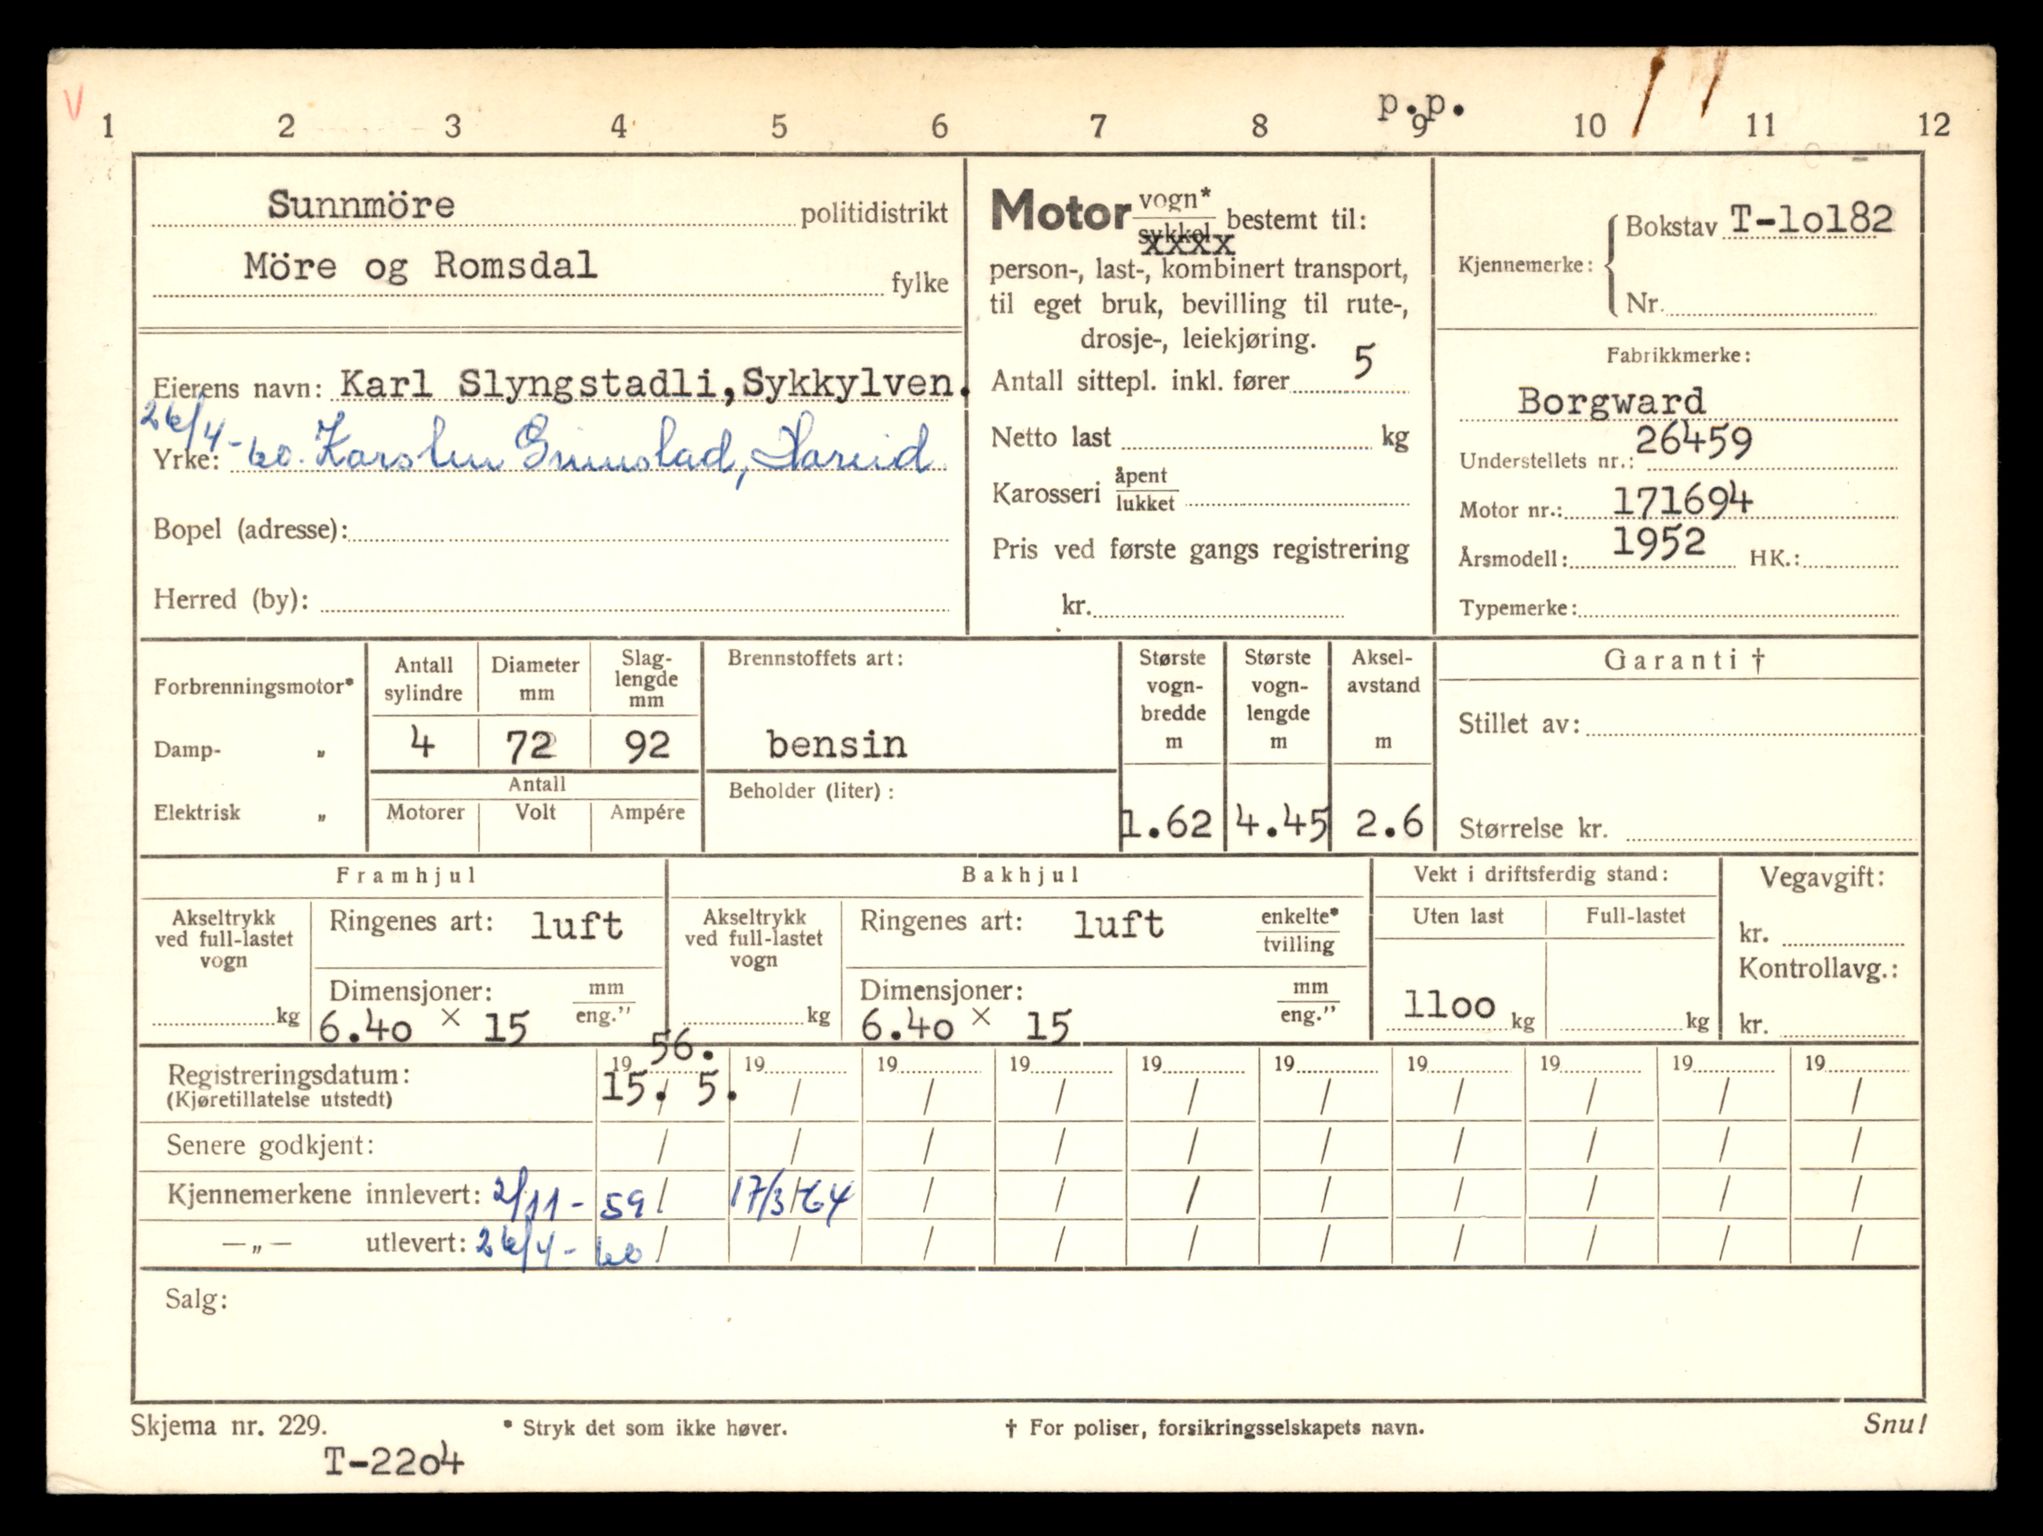 V
p.p.
1 2 3 4 5 6 7 8 9 10 11 12
Sunnmöre politidistrikt
Möre og Romsdal fylke
Eierens navn: Karl Slyngstadli, Sykkylven.
26/4-
Yrke: 60. Karsten Grimstad, Hareid
Bopel (adresse):
Herred (by):
Motor vogn* sykkel xxxx bestemt til:
person-, last-, kombinert transport,
til eget bruk, bevilling til rute-,
drosje-, leiekjøring.
Antall sittepl. inkl. fører 5
Netto last kg
Karosseri åpent lukket
Pris ved første gangs registrering
kr.
Kjennemerke: Bokstav T-10182
Nr.
Fabrikkmerke:
Borgward
Understellets nr.: 26459
Motor nr.: 171694
Årsmodell: 1952 HK.:
Typemerke:
Forbrenningsmotor*
Damp- „
Elektrisk „
Antall sylindre
4
Diameter mm
72
Slag-lengde mm
92
Antall
Motorer Volt Ampére
Brennstoffets art:
bensin
Beholder (liter):
Største vogn-bredde m
1.62
Største vogn-lengde m
4.45
Aksel-avstand m
2.6
Garanti †
Stillet av:
Størrelse kr.
Framhjul
Akseltrykk ved full-lastet vogn
kg
Ringenes art: luft
Dimensjoner: mm eng.”
6.40 × 15
Bakhjul
Akseltrykk ved full-lastet vogn
kg
Ringenes art: luft enkelte* tvilling
Dimensjoner: mm eng.”
6.40 × 15
Vekt i driftsferdig stand:
Uten last Full-lastet
1100 kg kg
Vegavgift:
kr.
Kontrollavg.:
kr.
Registreringsdatum: 19 56. 19 19 19 19 19 19 19 19 19
(Kjøretillatelse utstedt) 15. / 5. / / / / / / / / /
Senere godkjent: / / / / / / / / / /
Kjennemerkene innlevert: 2/11-59 / 17/3-64 / / / / / / / /
—„— utlevert: 26/4-60 / / / / / / / / / /
Salg:
Skjema nr. 229. * Stryk det som ikke høver. † For poliser, forsikringsselskapets navn. Snu!
T-2204